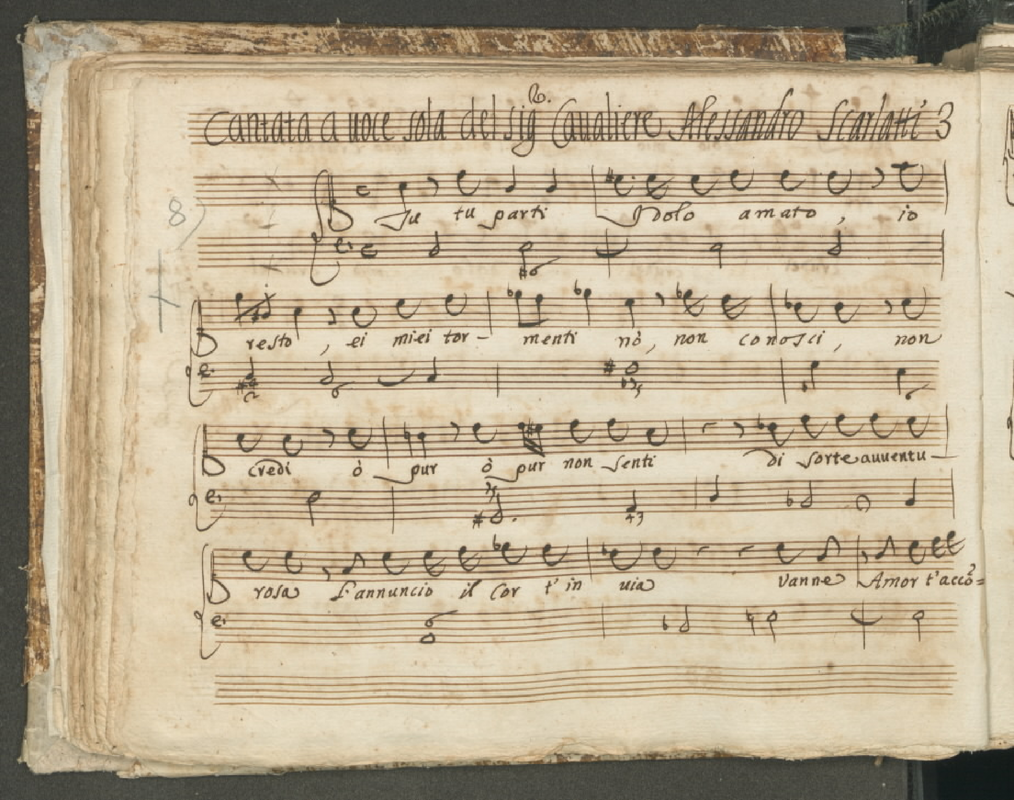 Cantata a uoce sola del sig.r Caualiere Alessandro Scarlatti 3
8)
Tu tu parti Idolo amato, io
resto, ei miei tor- menti nò, non conosci, non
credi ò pur ò pur non senti di sorte auuentu-
rosa L'annuncio il Cor t'in uia Vanne Amor t'accō=